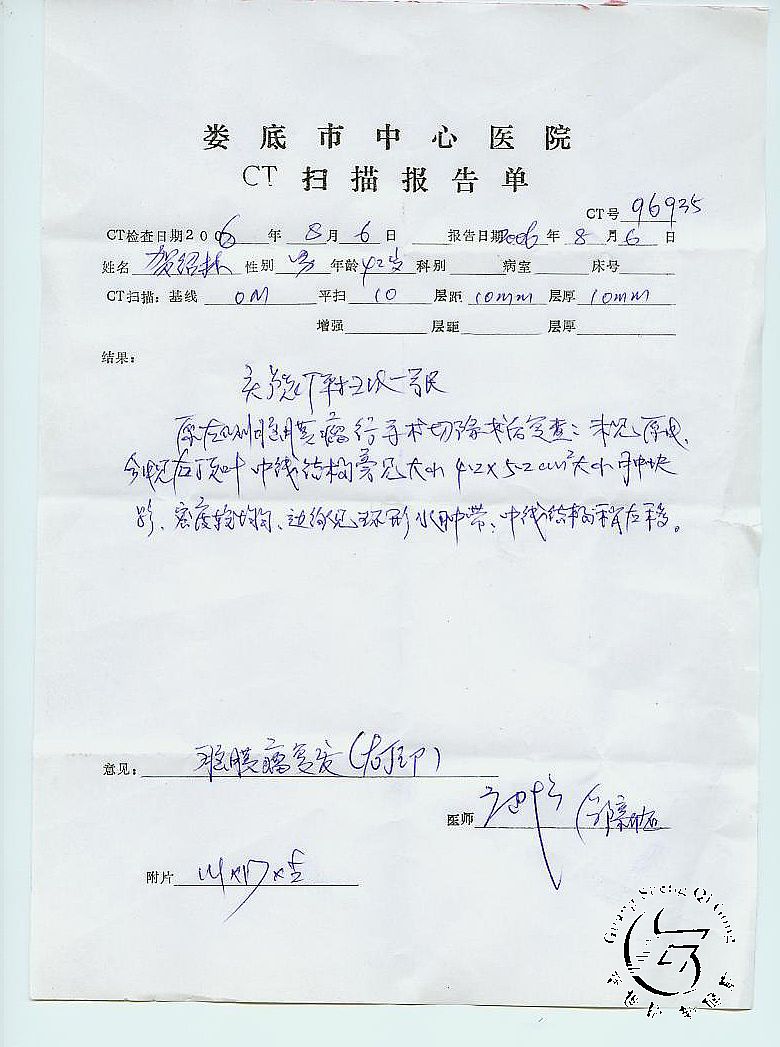 娄底市中心医院
CT 扫描报告单
CT号 96935
CT检查日期2006年8月6日 报告日期2006年8月6日
姓名 贺绍林 性别 男 年龄 42岁 科别 病室 床号
CT扫描：基线 OM 平扫 10 层距 10mm 层厚 10mm
增强 层距 层厚
结果：
脑膜瘤行手术切除术后复查：未见
顶叶中线结构旁见大小 4.2x5.2cm²大小肿块
影、密度较均匀、边缘见环形水肿带、中线结构稍左移。
意见：脑膜瘤复发（右顶叩）
医师
附片
Guang Sheng Qi Gong